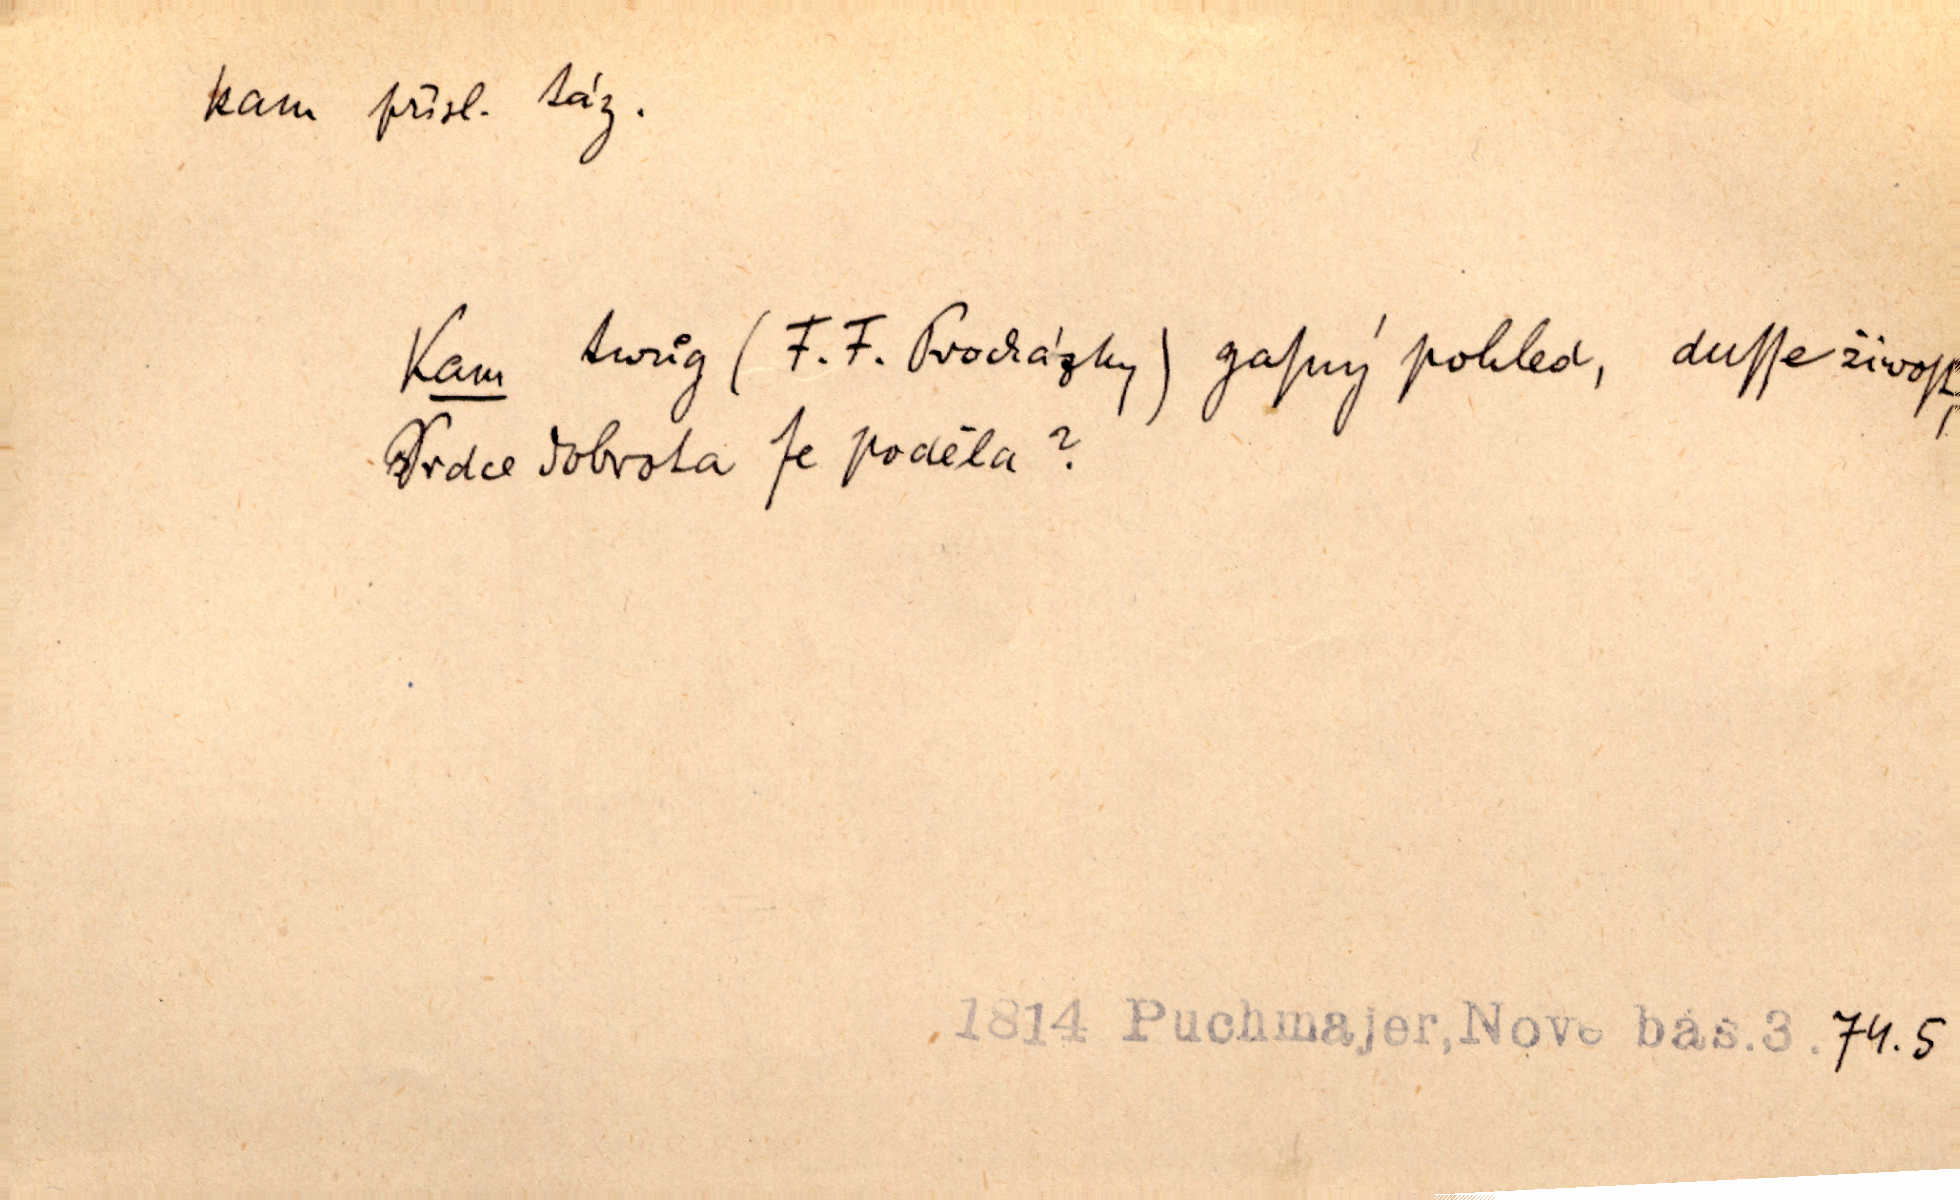 kam přísl. táz.
Kam twůg (F. F. Procházky) gaſný pohled, duſſe žiwoſt,
Srdce dobrota ſe poděla?
1814 Puchmajer, Nové bás. 3. 74.5